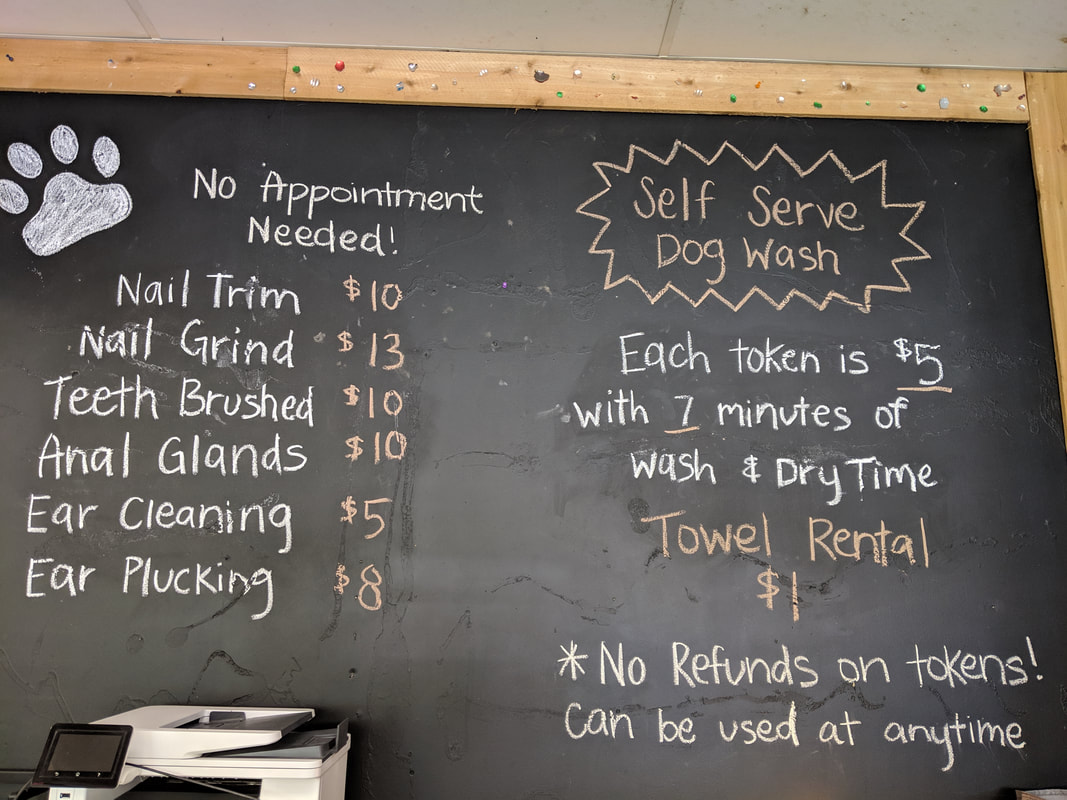 No Appointment
Needed!
Nail Trim $10
Nail Grind $13
Teeth Brushed $10
Anal Glands $10
Ear Cleaning $5
Ear Plucking $8
Self Serve
Dog Wash
Each token is $5
with 7 minutes of
Wash & Dry Time
Towel Rental
$1
*No Refunds on tokens!
Can be used at anytime